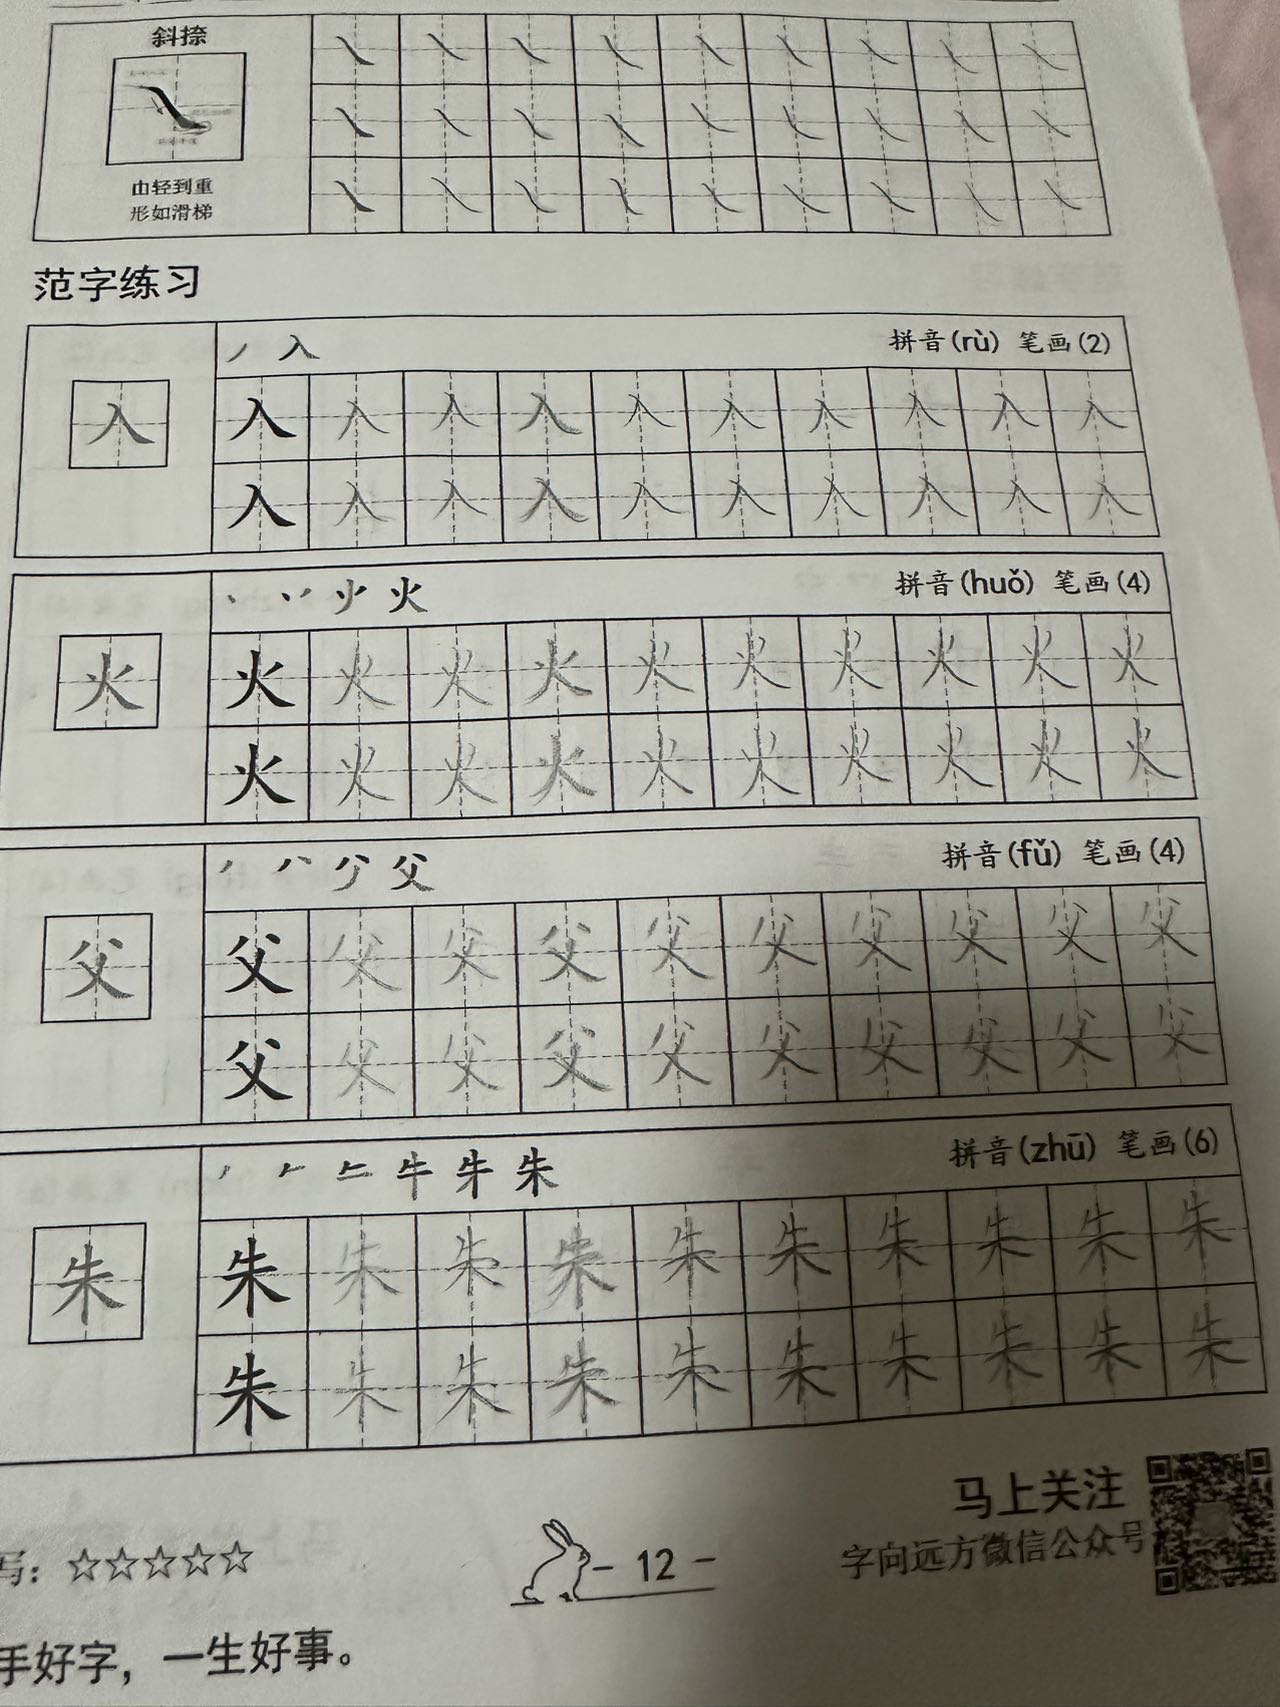 斜捺
由轻到重
形如滑梯
范字练习
入 拼音(rù) 笔画(2)
入 入 入 入 入 入 入 入 入 入
入 入 入 入 入 入 入 入 入 入
入
火 拼音(huǒ) 笔画(4)
火 火 火 火 火 火 火 火 火 火
火 火 火 火 火 火 火 火 火 火
火
父 拼音(fǔ) 笔画(4)
父 父 父 父 父 父 父 父 父 父
父 父 父 父 父 父 父 父 父 父
父
牛 朱 拼音(zhū) 笔画(6)
朱 朱 朱 朱 朱 朱 朱 朱 朱 朱
朱 朱 朱 朱 朱 朱 朱 朱 朱 朱
朱
写：☆☆☆☆☆
- 12 -
马上关注
字向远方微信公众号
手好字，一生好事。